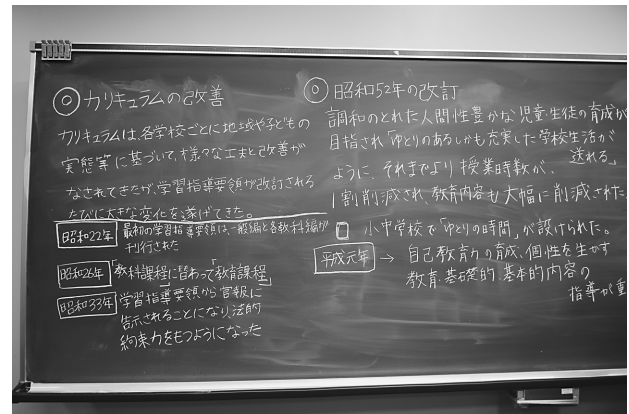 ◎カリキュラムの改善
カリキュラムは、各学校ごとに地域や子どもの
実態等に基づいて、様々な工夫と改善が
なされてきたが、学習指導要領が改訂される
たびに大きな変化を遂げてきた。
昭和22年 最初の学習指導要領は、一般編と各教科編が
刊行された
昭和26年 「教科課程」に替わって「教育課程」
昭和33年 学習指導要領から官報に
告示されることになり、法的
約束力をもつようになった
◎昭和52年の改訂
調和のとれた人間性豊かな児童生徒の育成が
目指され「ゆとりのあるしかも充実した学校生活が
送れる」
ように、それまでより授業時数が、
1割削減され、教育内容も大幅に削減された
小中学校で「ゆとりの時間」が設けられた。
平成元年 → 自己教育力の育成、個性を生かす
教育、基礎的、基本的内容の
指導が重